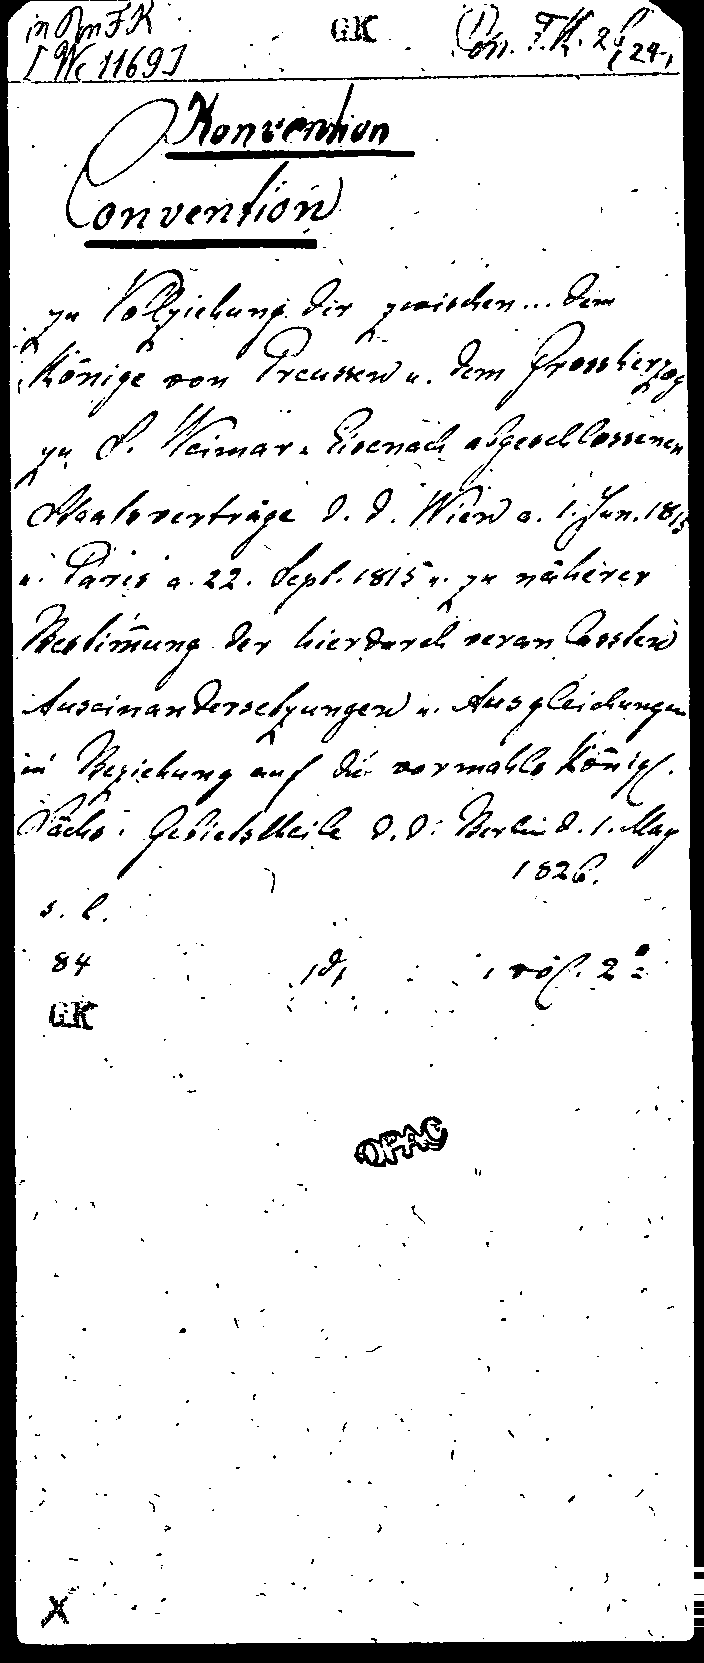 in Pon F.K
[We 1169]
GK
Pon. F.K. 26 (24.)
Konvention
Convention
zu Vollziehung der zwischen... dem
Könige von Preussen u. dem Grossherzog
zu S. Weimar u. Eisenach abgeschlossenen
Staatsverträge d. d. Wien a. 1. Jun. 1815
u. Paris a. 22. Sept. 1815 u. zu näherer
Bestim̄ung der hierdurch veranlassten
Auseinandersetzungen u. Ausgleichungen
in Beziehung auf die vormahls Königl.
Sächs. Gebietstheile d. d. Berlin d. 1. May
1826.
s. l.
84
2°
GK
OPAC
X